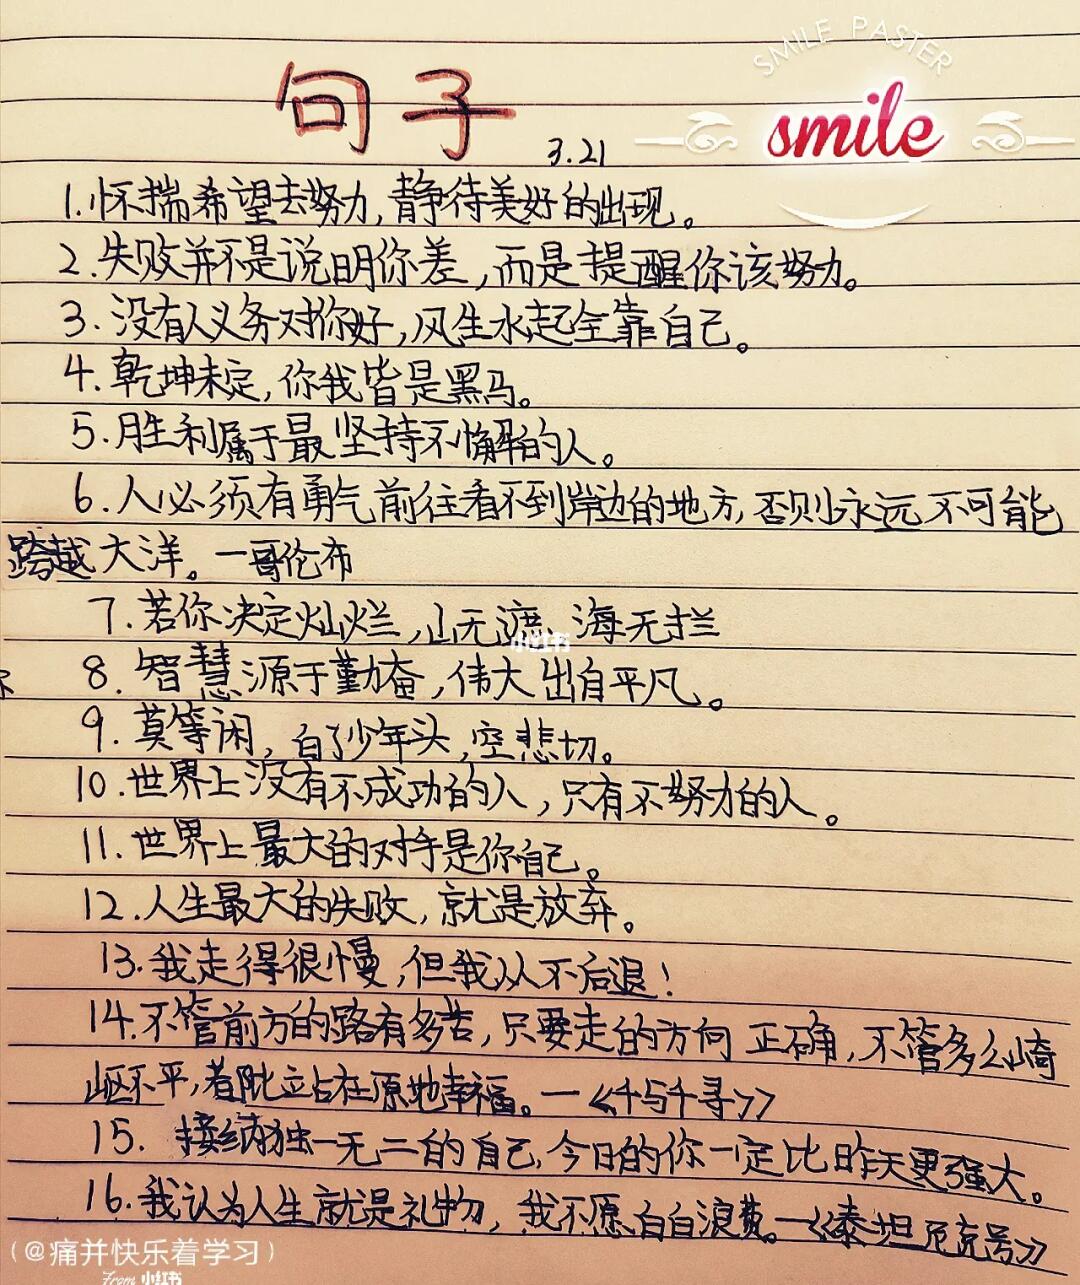 SMILE PASTER
smile
句子
3.21
1.怀揣希望去努力,静待美好的出现。
2.失败并不是说明你差,而是提醒你该努力。
3.没有人义务对你好,风生水起全靠自己。
4.乾坤未定,你我皆是黑马。
5.胜利属于最坚持不懈的人。
6.人必须有勇气前往看不到岸边的地方,否则永远不可能
跨越大洋。—哥伦布
7.若你决定灿烂,山无遮、海无拦
小红书
8.智慧源于勤奋,伟大出自平凡。
9.莫等闲,白了少年头,空悲切。
10.世界上没有不成功的人,只有不努力的人。
11.世界上最大的对手是你自己。
12.人生最大的失败,就是放弃。
13.我走得很慢,但我从不后退!
14.不管前方的路有多苦,只要走的方向正确,不管多么崎
岖不平,都比站在原地幸福。—《千与千寻》
15.接纳独一无二的自己,今日的你一定比昨天更强大。
16.我认为人生就是礼物,我不愿白白浪费。—《泰坦尼克号》
(@痛并快乐着学习)
From 小红书